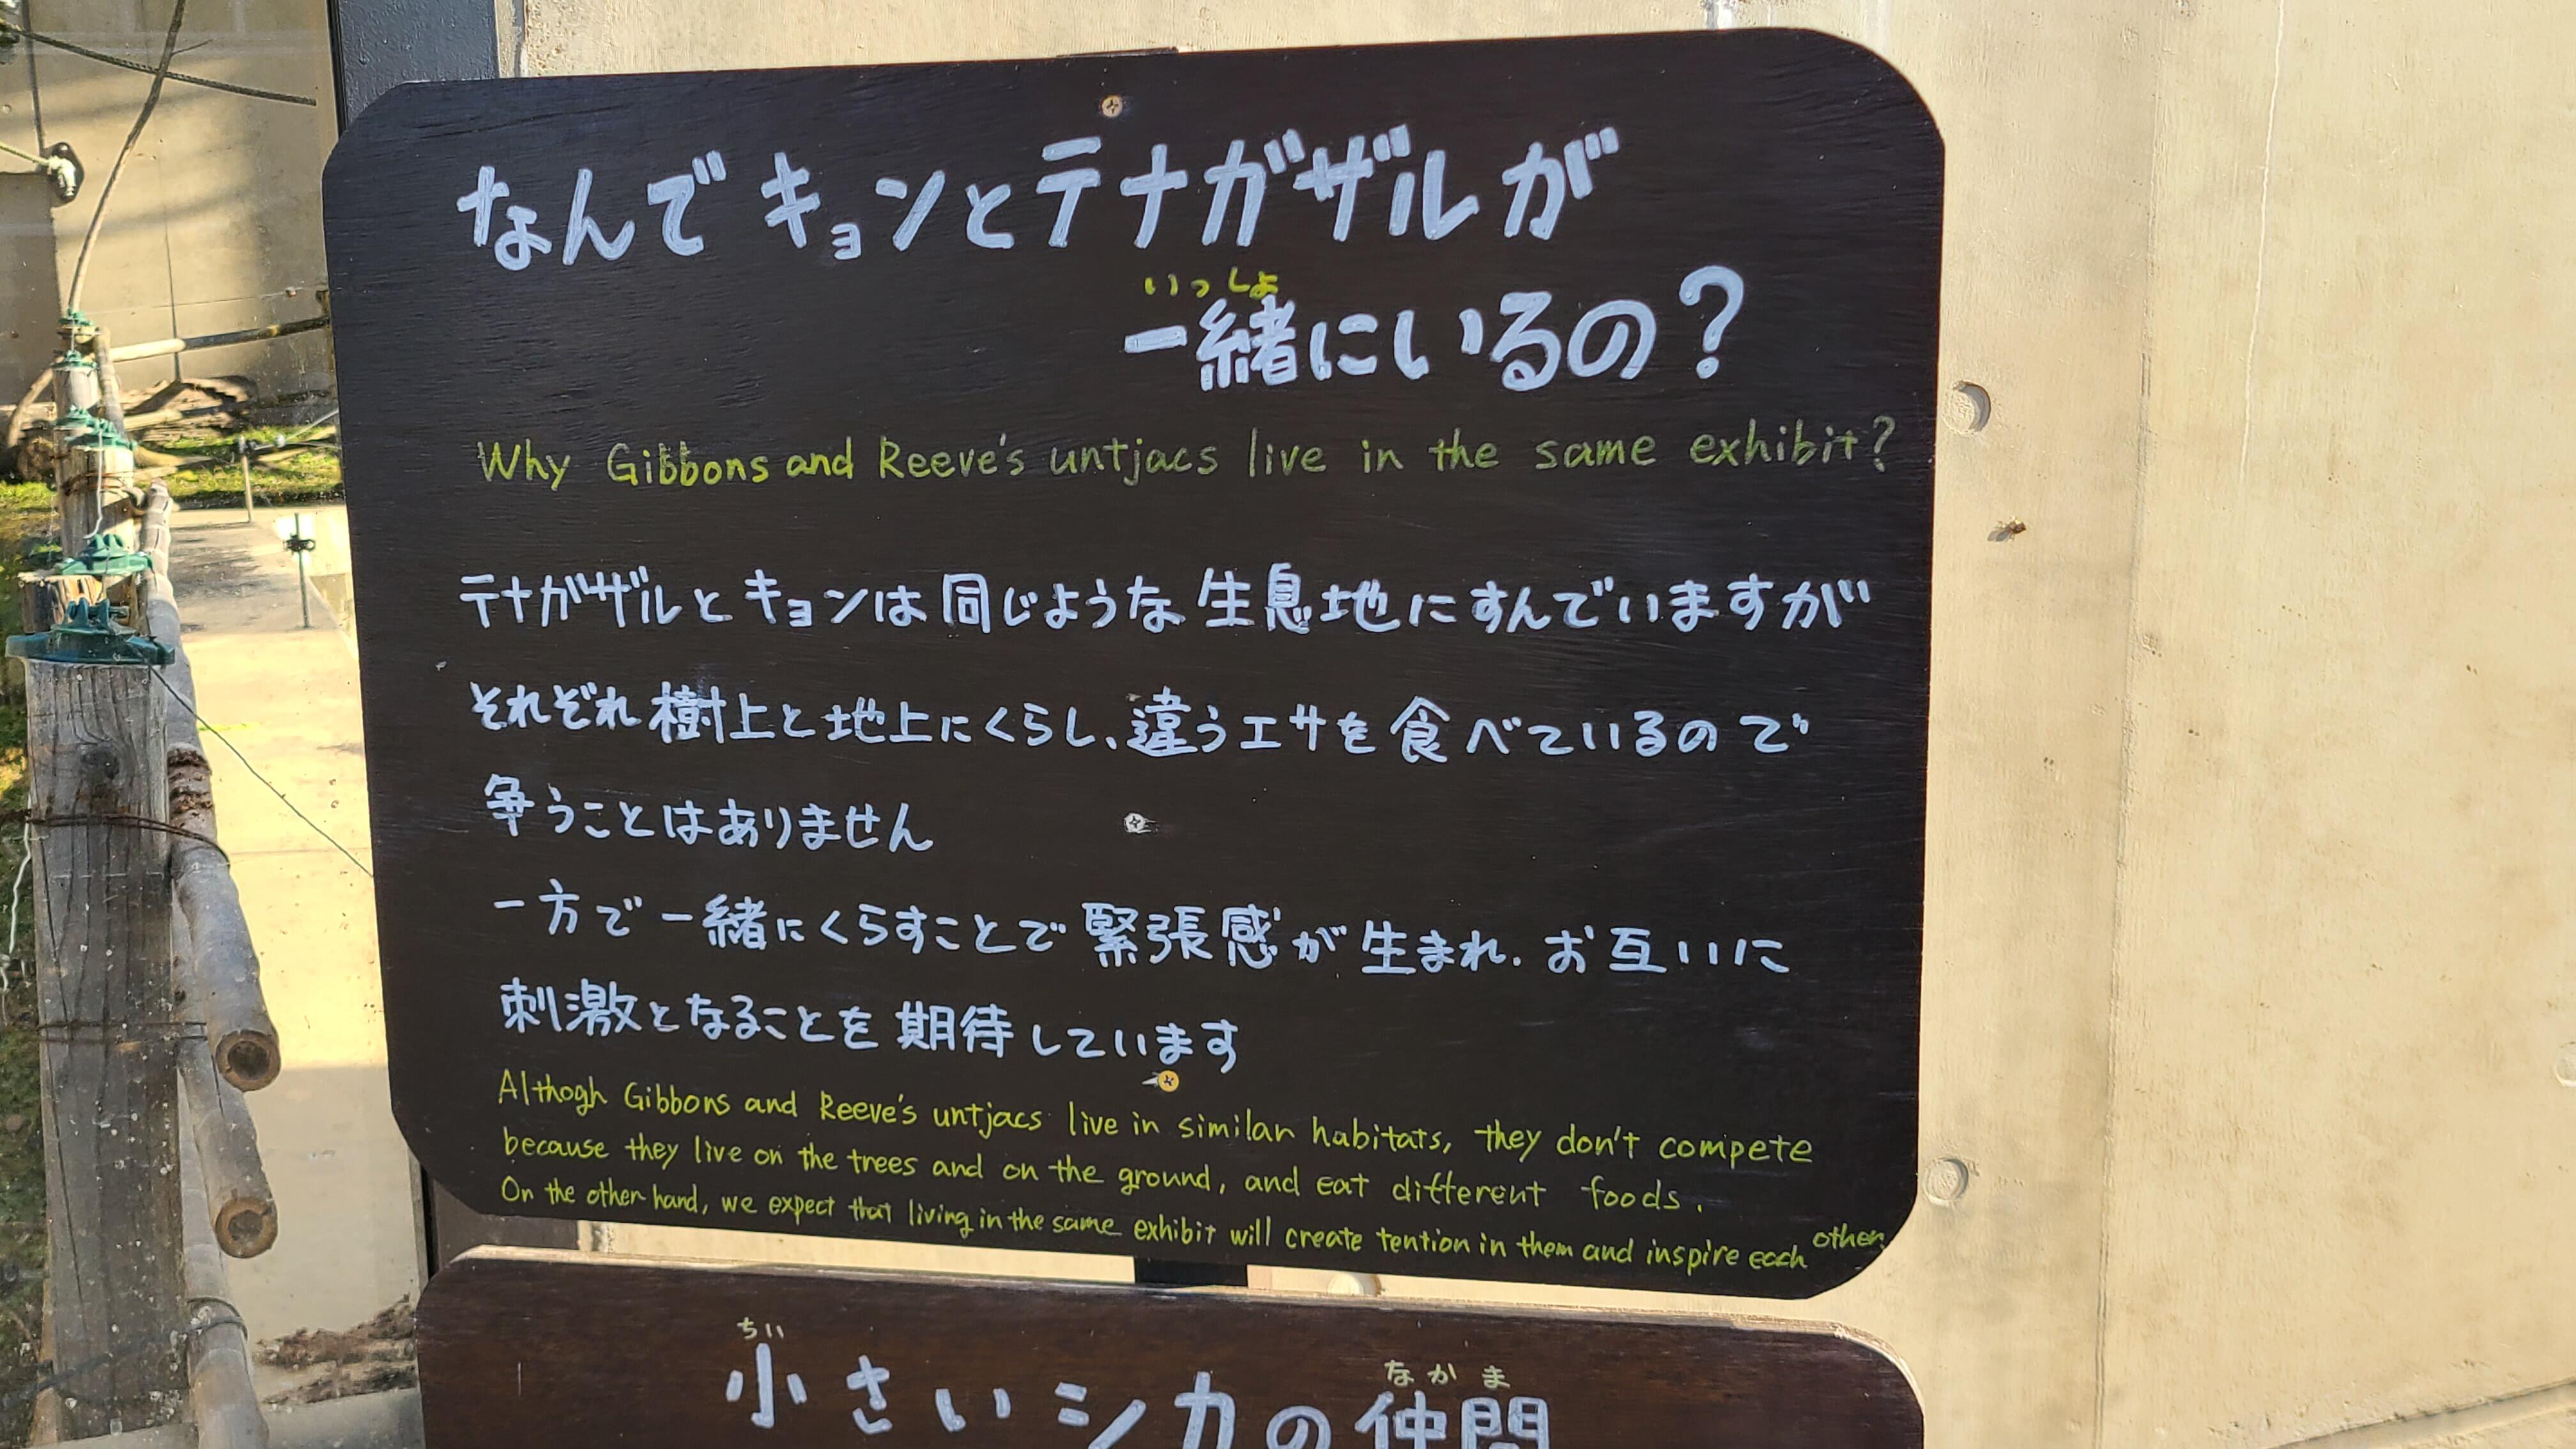 なんでキョンとテナガザルが
いっしょ
一緒にいるの?
Why Gibbons and Reeve's untjacs live in the same exhibit?
テナガザルとキョンは同じような生息地にすんでいますが
それぞれ樹上と地上にくらし、違うエサを食べているので
争うことはありません
一方で一緒にくらすことで緊張感が生まれ、お互いに
刺激となることを期待しています
Althogh Gibbons and Reeve's untjacs live in similar habitats, they don't compete
because they live on the trees and on the ground, and eat different foods.
On the other hand, we expect that living in the same exhibit will create tention in them and inspire each other.
ちい なかま
小さいシカの仲間